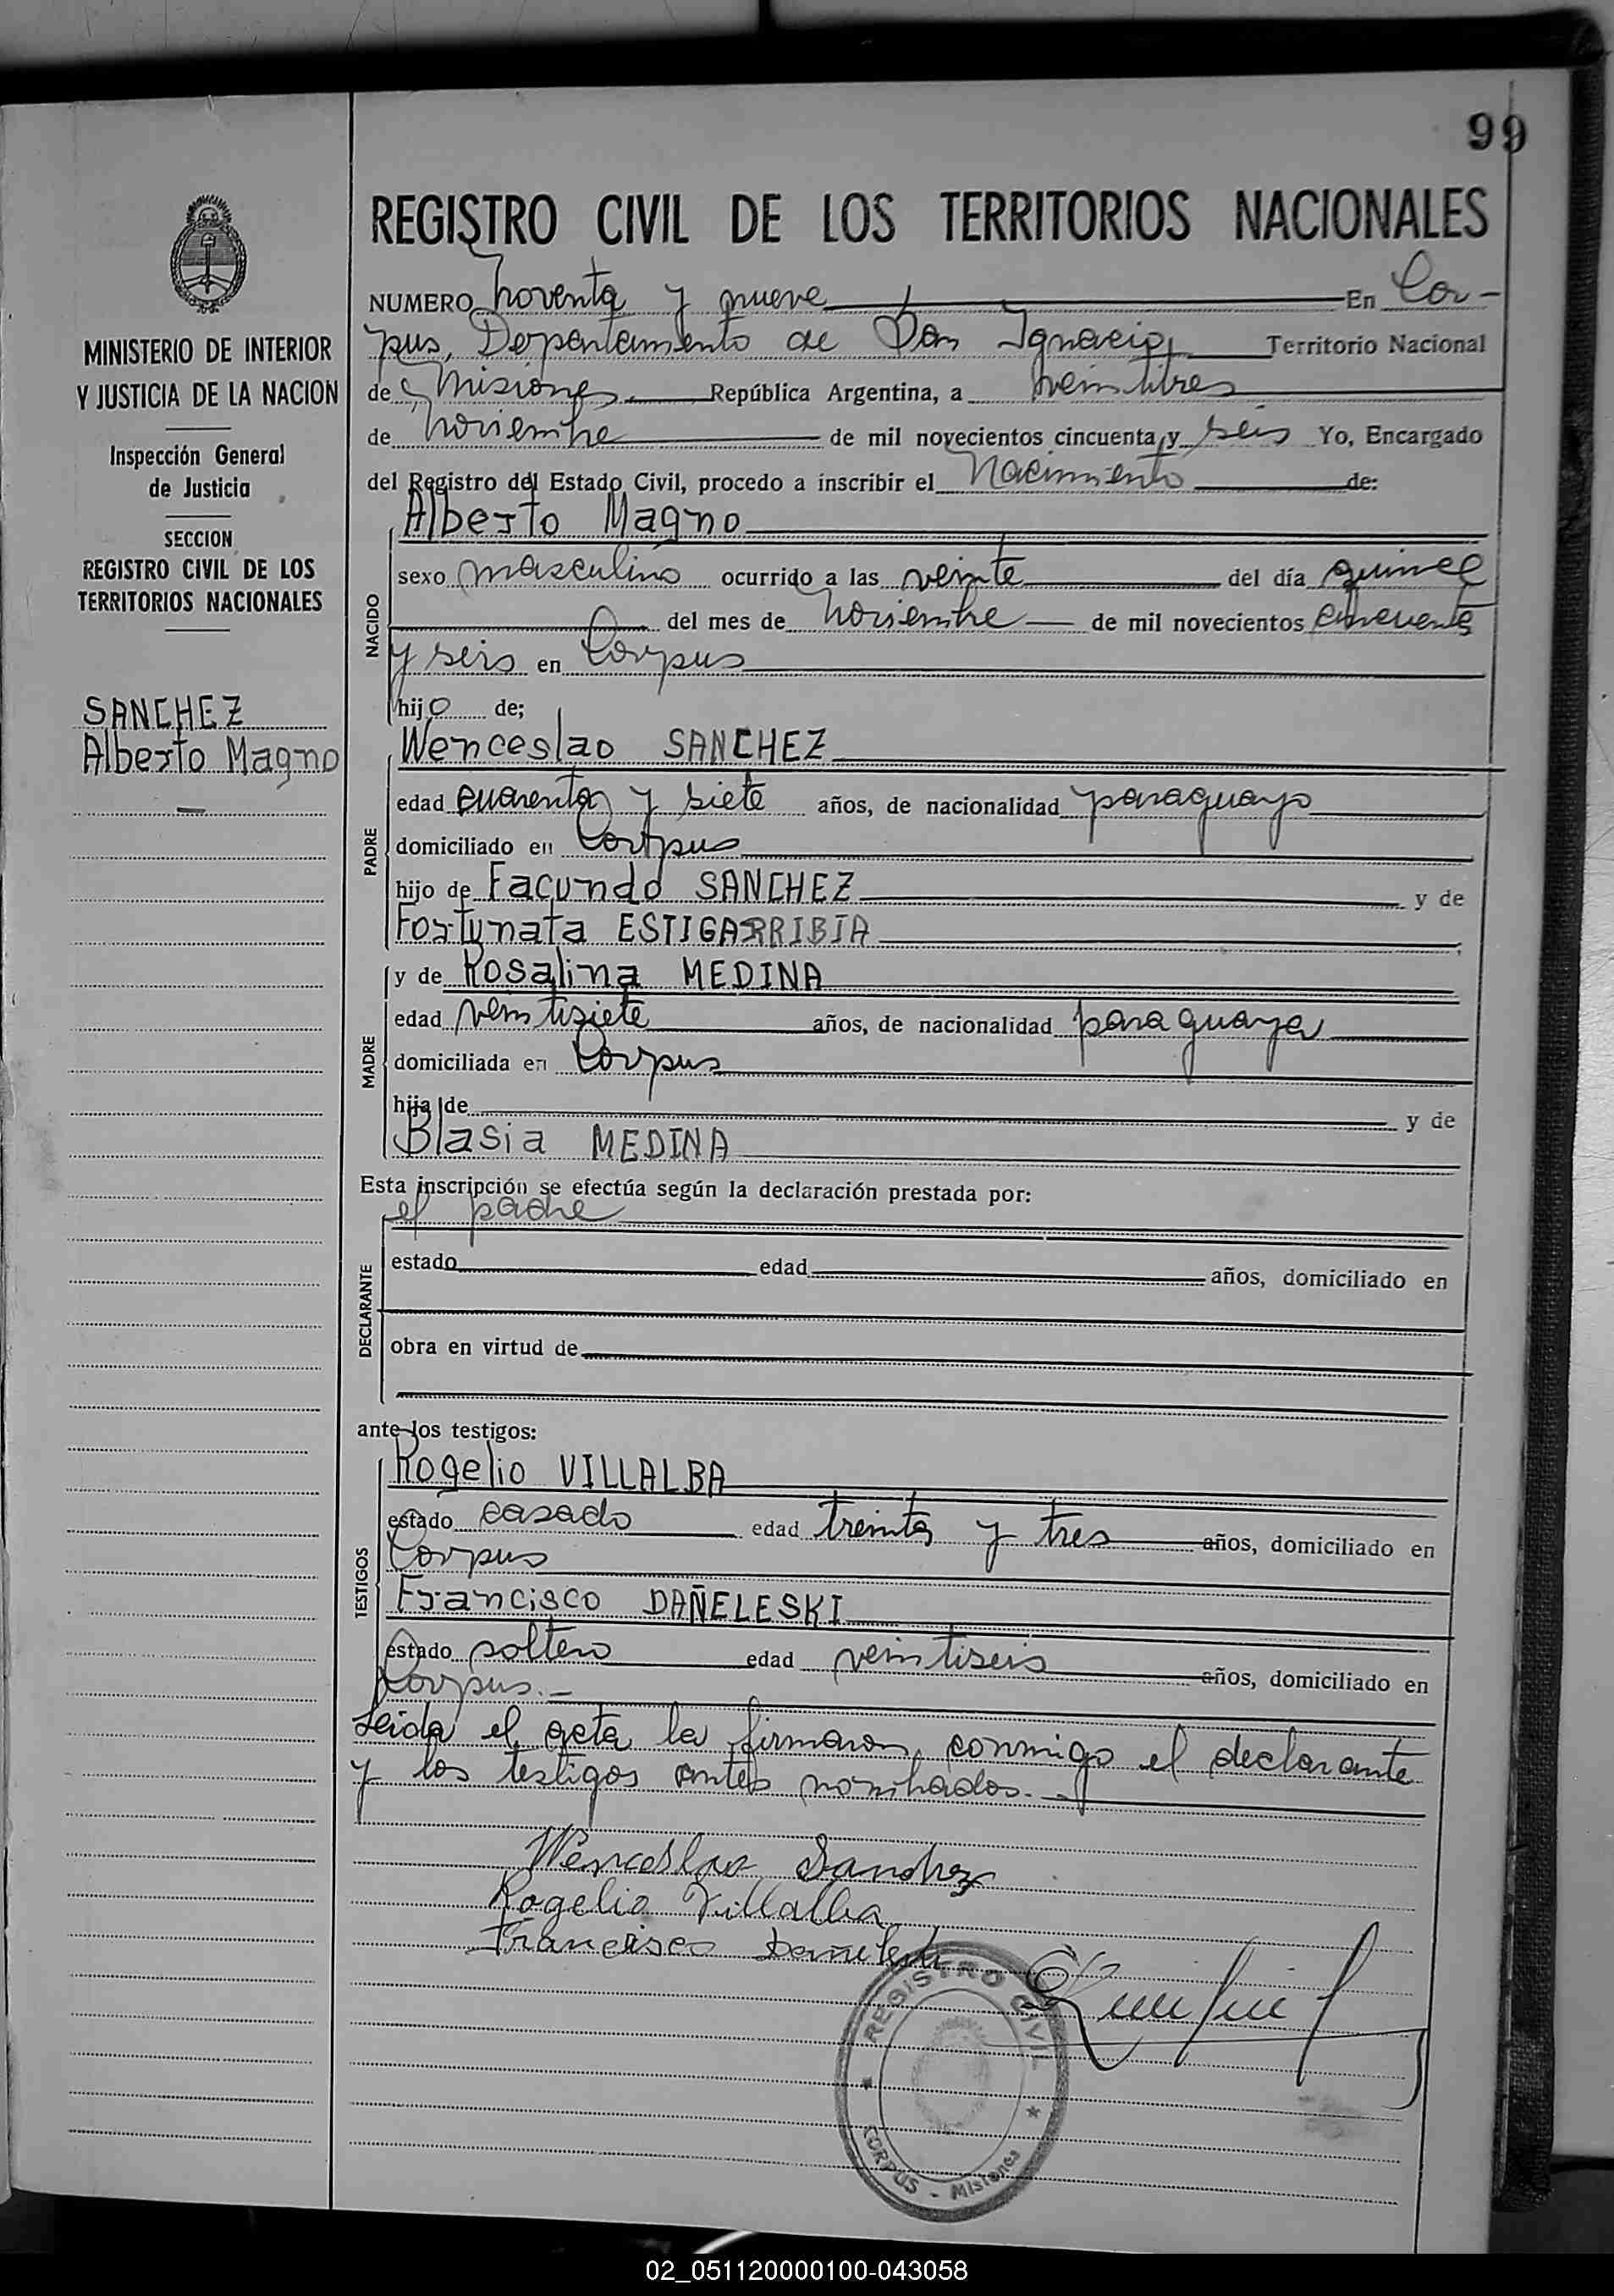 99
REGISTRO CIVIL DE LOS TERRITORIOS NACIONALES
NUMERO noventa y nueve En Cor-
pus, Departamento de San Ignacio, Territorio Nacional
de Misiones República Argentina, a veintitres
de noviembre de mil novecientos cincuenta y seis Yo, Encargado
del Registro del Estado Civil, procedo a inscribir el Nacimiento de:
MINISTERIO DE INTERIOR
Y JUSTICIA DE LA NACION
Inspección General
de Justicia
SECCION
REGISTRO CIVIL DE LOS
TERRITORIOS NACIONALES
SANCHEZ
Alberto Magno
NACIDO
Alberto Magno
sexo masculino ocurrido a las veinte del día quince
del mes de noviembre de mil novecientos cincuenta
y seis en Corpus
hijo de;
PADRE
Wenceslao SANCHEZ
edad cuarenta y siete años, de nacionalidad paraguayo
domiciliado en Corpus
hijo de Facundo SANCHEZ y de
Fortunata ESTIGARRIBIA
MADRE
y de Rosalina MEDINA
edad veintisiete años, de nacionalidad paraguaya
domiciliada en Corpus
hija de y de
Blasia MEDINA
Esta inscripción se efectúa según la declaración prestada por:
DECLARANTE
el padre
estado edad años, domiciliado en
obra en virtud de
ante los testigos:
TESTIGOS
Rogelio VILLALBA
estado casado edad treinta y tres años, domiciliado en
Corpus
Francisco DAÑELESKI
estado soltero edad veintiseis años, domiciliado en
Corpus.-
Leida el acta la firmaron conmigo el declarante
y los testigos antes nombrados.-
Wenceslao Sanchez
Rogelio Villalba
Francisco Dañeleski
REGISTRO CIVIL
CORPUS - Misiones
02_051120000100-043058